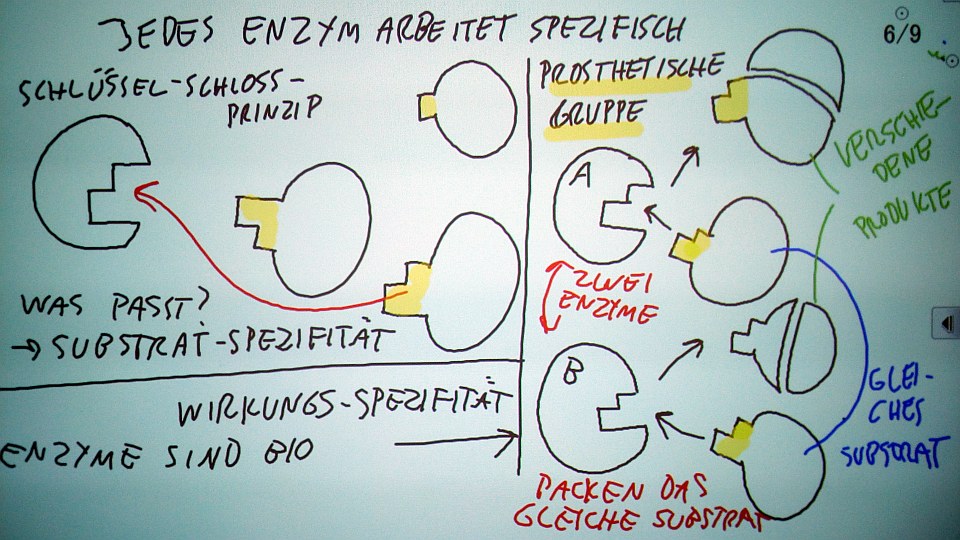 JEDES ENZYM ARBEITET SPEZIFISCH
6/9
SCHLÜSSEL-SCHLOSS-
PRINZIP
WAS PASST?
→ SUBSTRAT-SPEZIFITÄT
WIRKUNGS-SPEZIFITÄT
ENZYME SIND BIO
PROSTHETISCHE
GRUPPE
A
ZWEI
ENZYME
B
PACKEN DAS
GLEICHE SUBSTRAT
VERSCHIE-
DENE
PRODUKTE
GLEI-
CHES
SUBSTRAT